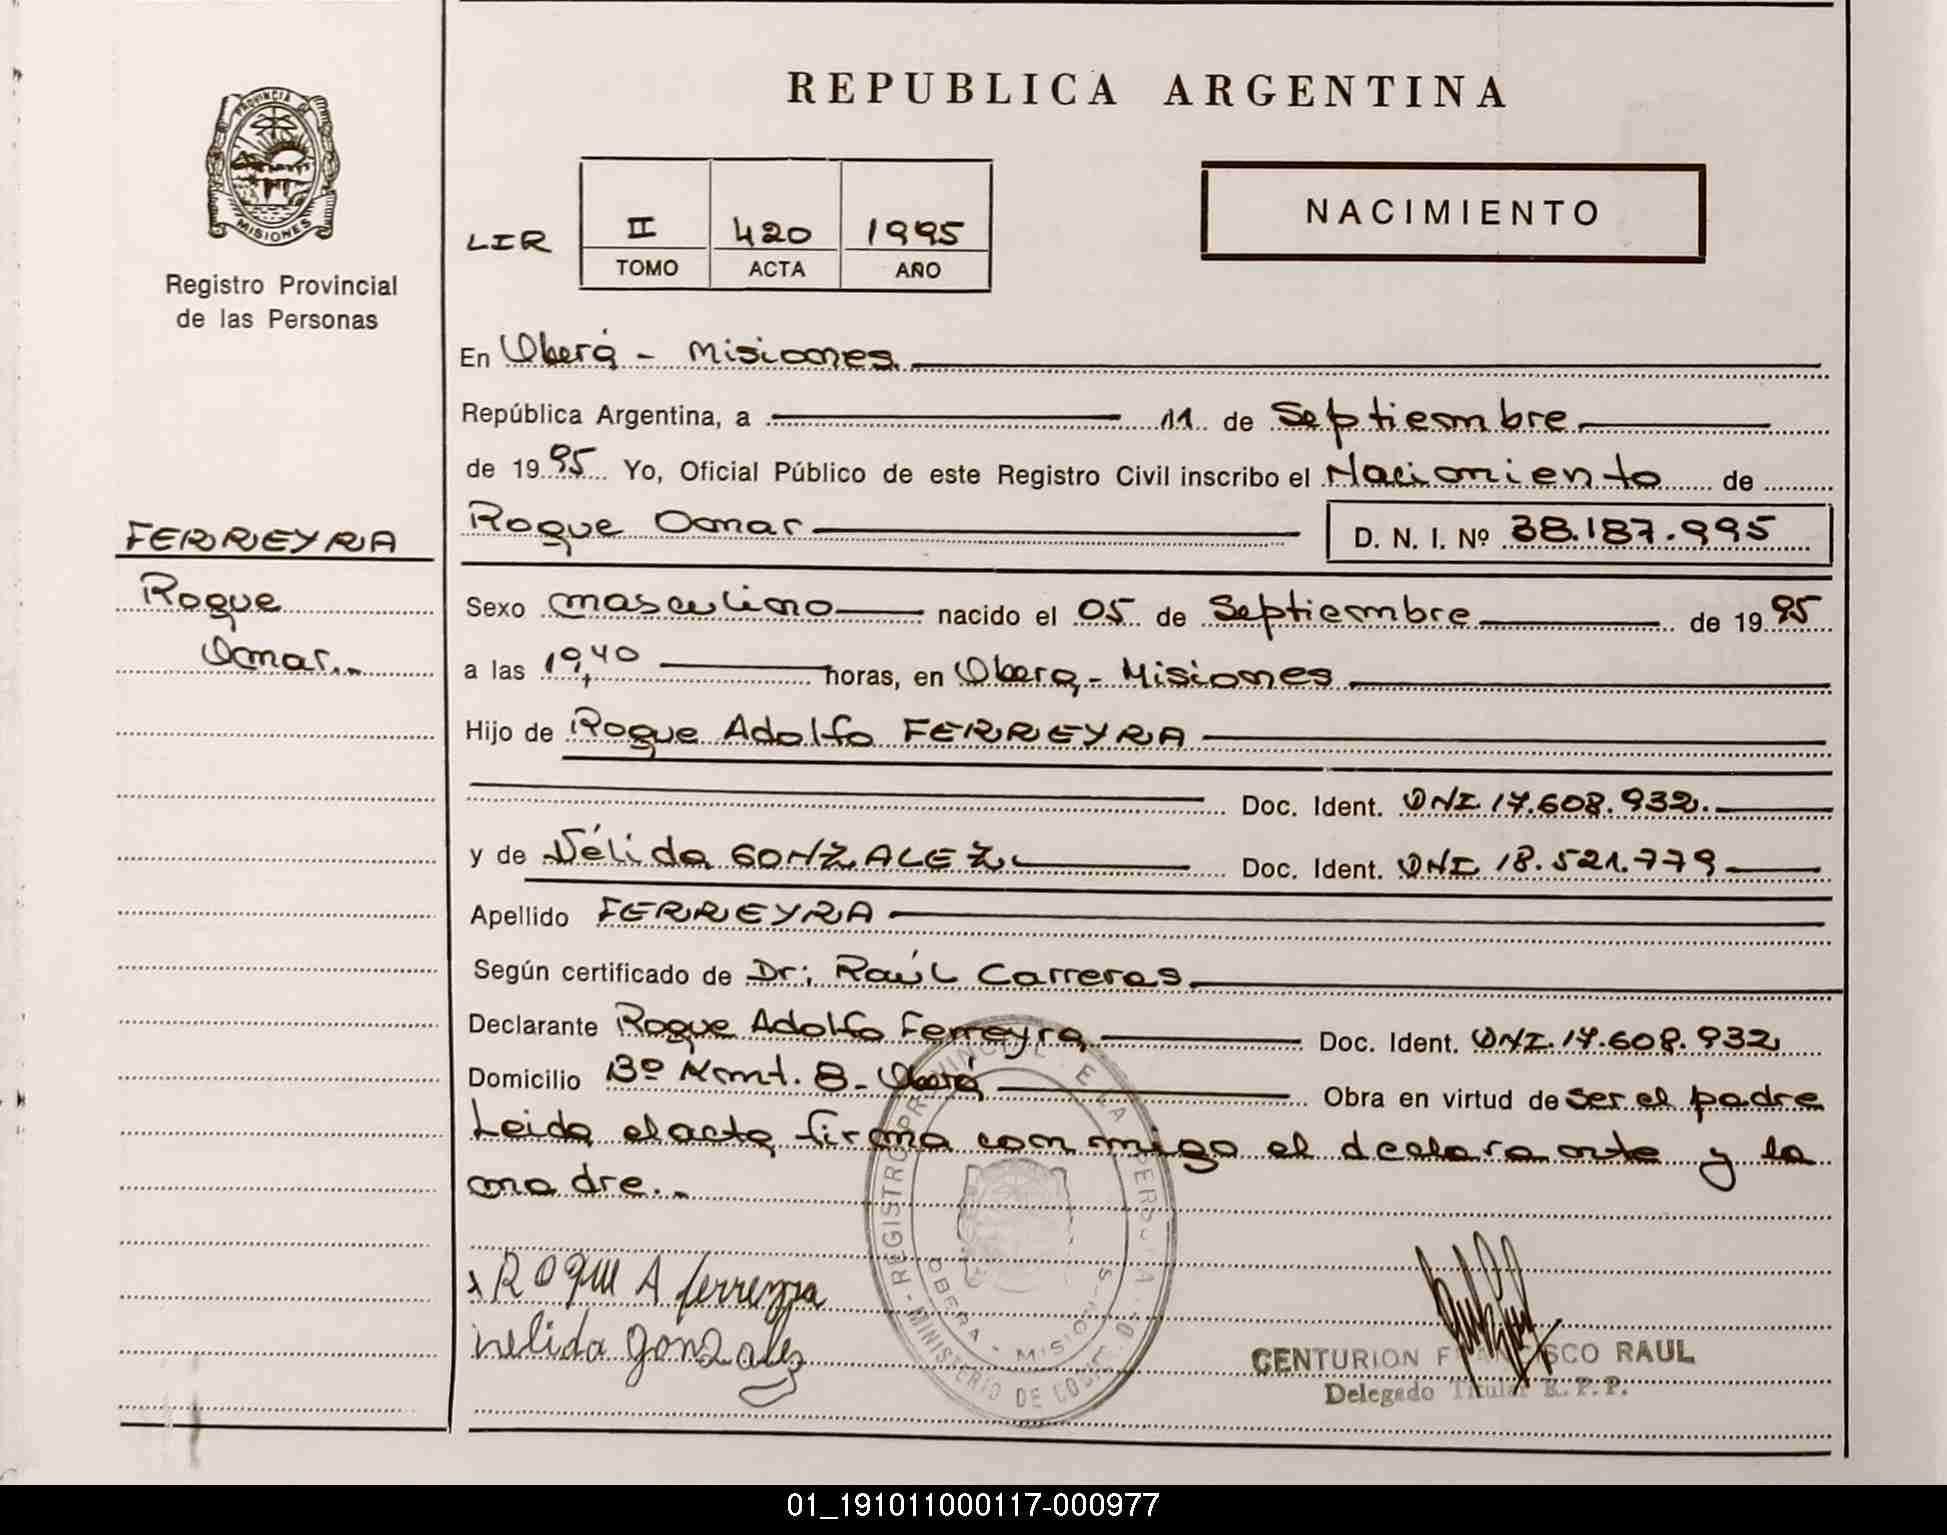 REPUBLICA ARGENTINA
PROVINCIA DE
MISIONES
Registro Provincial
de las Personas
LIR
II 420 1995
TOMO ACTA AÑO
NACIMIENTO
En Oberá - Misiones.
República Argentina, a 11 de Septiembre
de 1995 Yo, Oficial Público de este Registro Civil inscribo el Nacimiento de
Roque Omar D. N. I. Nº 38.187.995
FERREYRA
Roque
Omar..
Sexo masculino nacido el 05 de Septiembre de 1995
a las 19,40 horas, en Obera,- Misiones
Hijo de Roque Adolfo FERREYRA
Doc. Ident. DNI.17.608.932.
y de Nélida GONZALEZ Doc. Ident. DNI 18.521.779
Apellido FERREYRA
Según certificado de Dr; Raúl Carreras
Declarante Roque Adolfo Ferreyra Doc. Ident. DNI.17.608.932
Domicilio Bº Kmt. 8- Oberá Obra en virtud de ser el padre
Leida el acta firma conmigo el declarante y la
madre..
x ROQUE A ferreyra
nelida gonzalez
REGISTRO PROVINCIAL DE LAS PERSONAS
OBERA - MISIONES
MINISTERIO DE GOBIERNO
CENTURION FRANCISCO RAUL
Delegado Titular R.P.P.
01_191011000117-000977